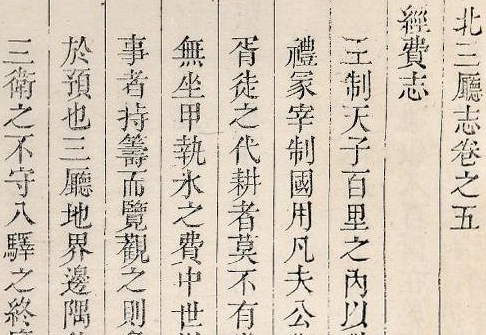 北三廳志卷之五
經費志
王制天子百里之內以
禮冢宰制國用凡夫公
胥徒之代耕者莫不有
無坐甲執氷之費中世
事者持籌而覽觀之則
於預也三廳地界邊隅
三衛之不守入驛之終